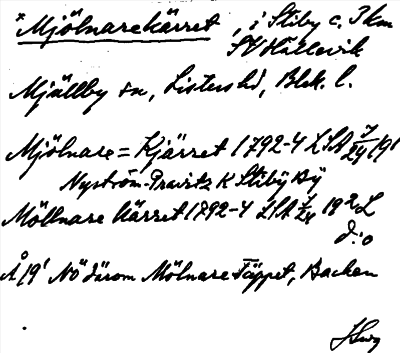 *Mjölnarekärret, i Stiby c. 3 km
SV Hällevik
Mjällby sn, Listers hd, Blek. l.
Mjölnare=Kjärret 1792-4 LSA 7/24 19¹
Nyström-Pravitz K Stiby By
Möllnare kärret 1792-4 LSA 7/24 19² L
d:o
Å 19¹ NÖ därom Mölnare Täppet, Backen